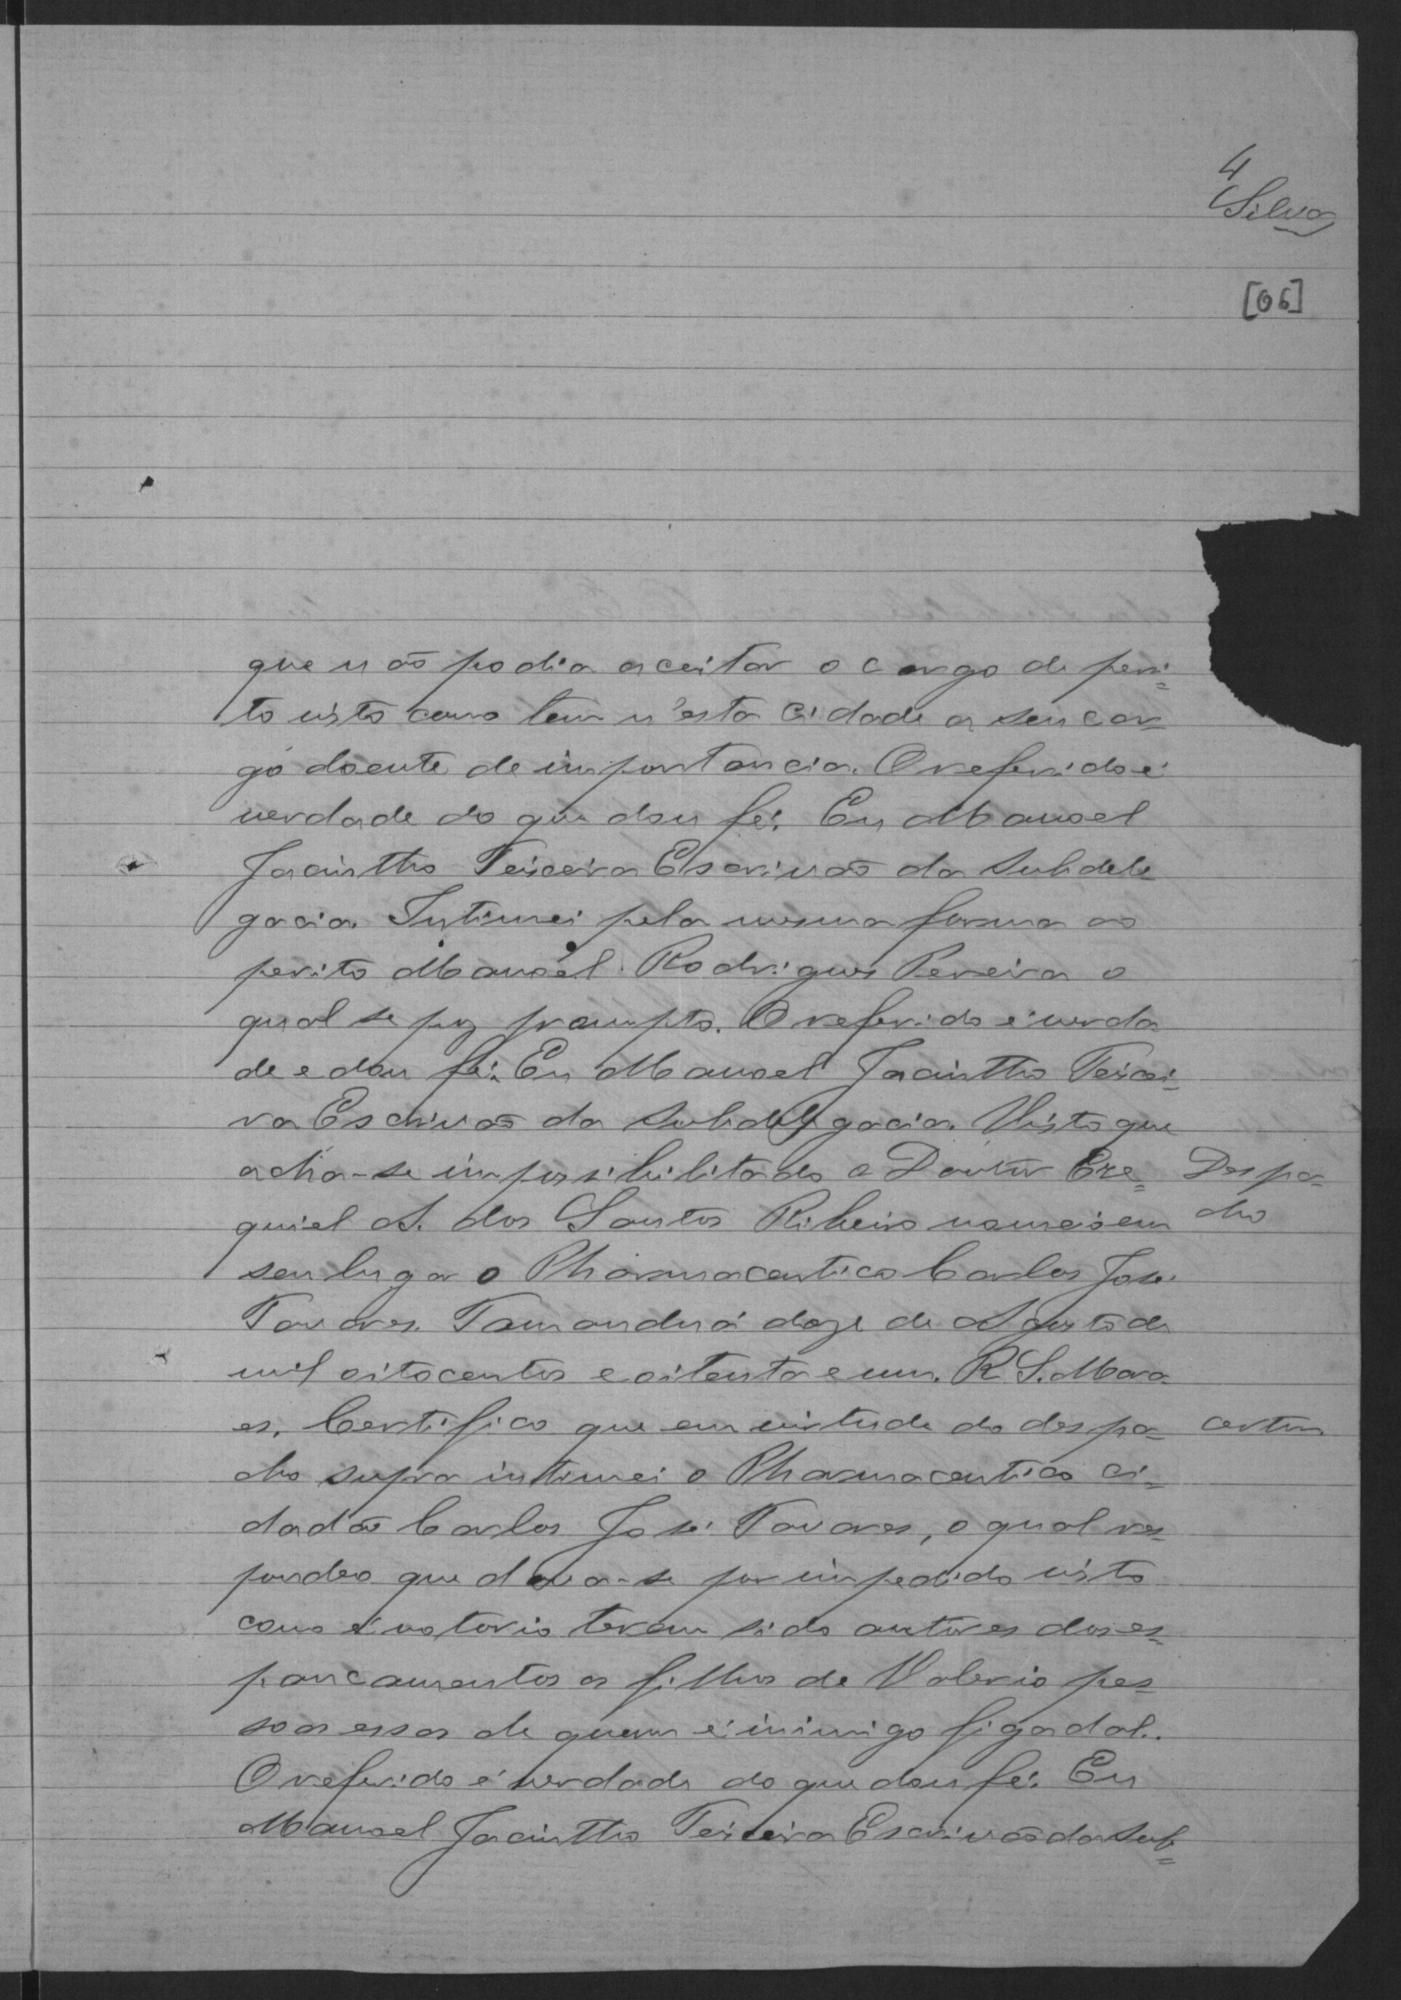 4
Silva
[06]
que não podia aceitar o cargo de peri=
to visto como tem n'esta cidade a seu car=
go doente de importancia. O referido é
verdade do que dou fé. Eu Manoel
Jacintho Teixeira Escrivão da Subdele
gacia. Intimei pela mesma forma ao
perito Manoel Rodrigues Pereira o
qual se poz prompto. O referido é verda
de e dou fé. Eu Manoel Jacintho Teixei=
ra Escrivão da Subdelegacia. Visto que
acha-se impossibilitado o Doutor Eze=
quiel A. dos Santos Ribeiro nomeio em
seu lugar o Pharmaceutico Carlos José
Tavares. Tamanduá doze de Agosto de
mil oitocentos e oitenta e um. R. S. Mora
es. Certifico que em virtude do despa=
cho supra intimei o Pharmaceutico ci=
dadão Carlos José Tavares, o qual res=
pondeo que dava-se por impedido visto
como é notorio terem sido autores dos es=
pancamentos os filhos de Valerio pes=
soas essas de quem é inimigo figadal.
O referido é verdade do que dou fé. Eu
Manoel Jacintho Teixeira Escrivão da Sub=
Despa=
cho
certam